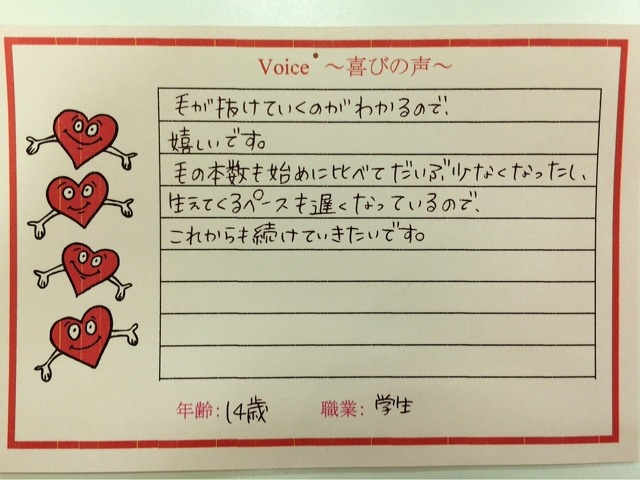 Voice ～喜びの声～
毛が抜けていくのがわかるので、
嬉しいです。
毛の本数も始めに比べてだいぶ少なくなったし、
生えてくるペースも遅くなっているので、
これからも続けていきたいです。
年齢: 14歳 職業: 学生